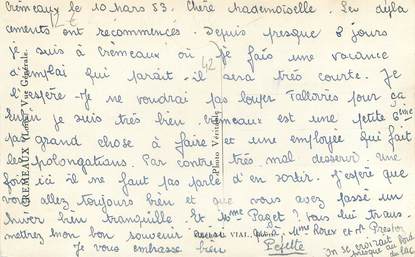 Crémeaux le 10 mars 53. Chère Mademoiselle. Les dépla
cements ont recommencés. Depuis presque 8 jours
je suis à Crémeaux où je fais une vacance
d'emploi qui parait-il sera très courte. Je
l'espère. Je ne voudrai pas louper Talloires pour ça
je suis très bien. Crémeaux est une petite
pas grand chose à faire et une employée qui fait
les prolongations. Par contre très mal desservi une
fois ici il ne faut pas parlé d'en sortir. J'espère que
vous allez toujours bien et que vous avez passé un
hiver bien tranquille. Et Mme Paget? vous lui trans-
mettrez mon bon souvenir ainsi qu'à Mme Rorex et
Je vous embrasse bien
On se croirait
presque au bord
du lac
12 €
42
CREMEAUX (Loire) Vue Générale.
Photo Véritable
VIAL,